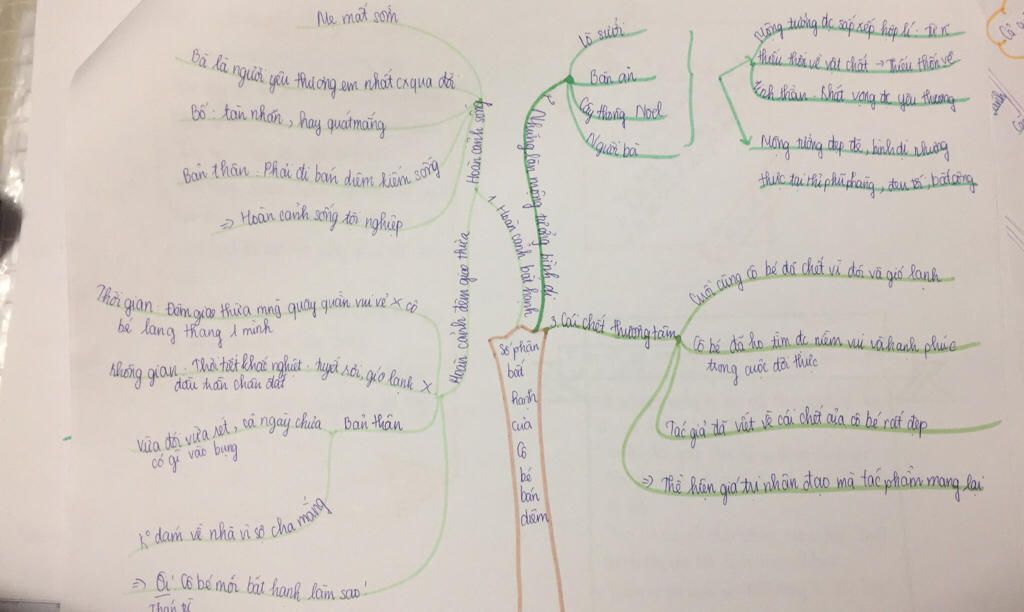 số phận
bất
hạnh
của
Cô
bé
bán
diêm
1. Hoàn cảnh bất hạnh
Hoàn cảnh sống
Mẹ mất sớm
Bà là người yêu thương em nhất cx qua đời
Bố: tàn nhẫn, hay quát mắng
Bản thân: Phải đi bán diêm kiếm sống
=> Hoàn cảnh sống tội nghiệp
Hoàn cảnh đêm giao thừa
Thời gian: Đêm giao thừa mng quây quần vui vẻ X cô
bé lang thang 1 mình
Không gian: Thời tiết khắc nghiệt: tuyết rơi, gió lạnh X
đầu trần chân đất
Bản thân
vừa đói vừa rét, cả ngày chưa
có gì vào bụng
K° dám về nhà vì sợ cha mắng
=> Ôi! Cô bé mới bất hạnh làm sao!
Thán từ
2. Những lần mộng tưởng bình dị
Lò sưởi
Bàn ăn
Cây thông Noel
Người bà
Mộng tưởng đc sắp xếp hợp lí: từ
thiếu thốn về vật chất → Thiếu thốn về
tinh thần. Khát vọng đc yêu thương
Mộng tưởng đẹp đẽ, bình dị nhưng
thực tại thì phũ phàng, đen tối, bất công
3. Cái chết thương tâm
Cuối cùng cô bé đã chết vì đói và gió lạnh
Cô bé đã ko tìm đc niềm vui và hạnh phúc
trong cuộc đời thực
Tác giả đã viết về cái chết của cô bé rất đẹp
=> Thể hiện giá trị nhân đạo mà tác phẩm mang lại